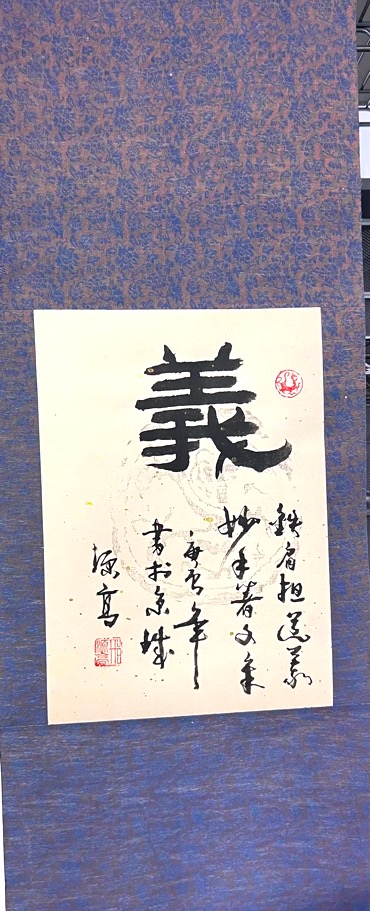 義
鐵肩担道義
妙手著文章
庚寅年
書於京城